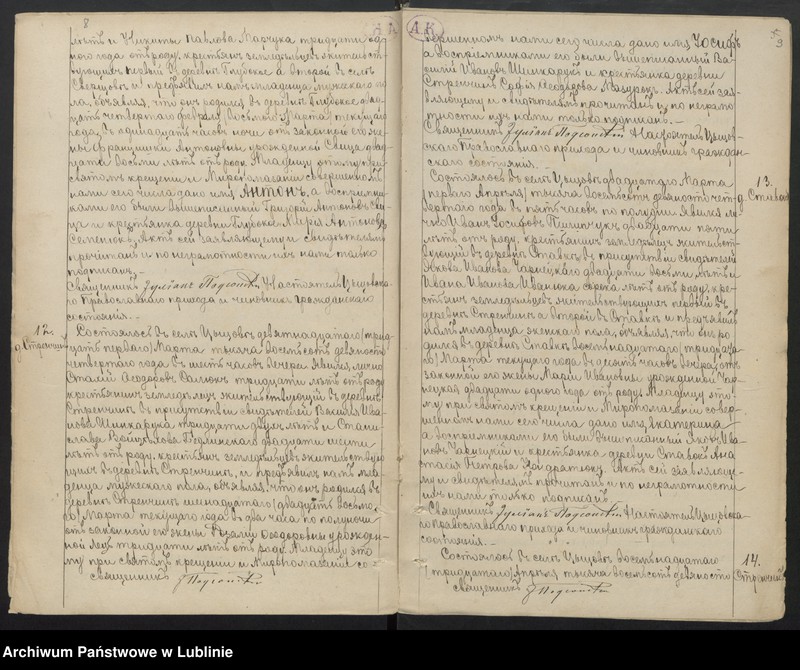 8
лѣтъ и Никиты Павлова Марчука тридцати од-
ного года отъ роду, крестьянъ земледѣльцевъ жительст-
вующихъ первый въ деревнѣ Глубокое а второй въ селѣ
и предъявилъ намъ младенца мужескаго по-
ла, объявляя, что онъ родился въ деревнѣ Глубокое два-
дцать четвертаго Февраля /восьмаго Марта/ текущаго
года, въ одинадцать часовъ ночи отъ законной его же-
ны Францишки Антоновны урожденной два-
дцати восьми лѣтъ отъ роду. Младенцу этому при
святомъ крещеніи и Миропомазаніи совершенномъ
нами сего числа дано имя Антонъ, а воспріемни-
ками его были вышеписанный Григорій Антоновъ
и крестьянка деревни Глубокое Марія Антонова
Семенюкъ. Актъ сей заявляющему и свидѣтелямъ
прочитанъ и по неграмотности ихъ нами только
подписанъ.-
Священникъ Настоятель Цыцовска-
го Православнаго прихода и чиновникъ гражданскаго
состоянія.-
12.
д. Стрѣнчинъ
Состоялось въ селѣ Цыцовѣ девятнадцатаго /трид-
цать перваго/ Марта тысяча восемьсотъ девяносто
четвертаго года въ шесть часовъ вечера. Явился лично
Ѳеодоровъ тридцати лѣтъ отъ роду
крестьянинъ земледѣлецъ жительствующій въ деревнѣ
Стрѣнчинъ въ присутствіи свидѣтелей Василія Ива-
нова Шинкарука тридцати двухъ лѣтъ и Стани-
слава двадцати шести
лѣтъ отъ роду, крестьянъ земледѣльцевъ жительствую-
щихъ въ деревнѣ Стрѣнчинъ, и предъявилъ намъ мла-
денца мужескаго пола, объявляя, что онъ родился въ
деревнѣ Стрѣнчинъ шестнадцатаго /двадцать восьма-
го/ Марта текущаго года въ два часа по полуночи
отъ законной его жены Розаліи Ѳеодоровны урожден-
ной тридцати лѣтъ отъ роду. Младенцу это-
му при святомъ крещеніи и Миропомазаніи со-
священникъ
АК
9
вершенномъ нами сего числа дано имя Іосифъ
а воспріемниками его были вышеписанный Ва-
силій Ивановъ Шинкарукъ и крестьянка деревни
Стрѣнчинъ Софія Ѳеодорова Мазурекъ. Актъ сей зая-
вляющему и свидѣтелямъ прочитанъ и по неграмо-
тности ихъ нами только подписанъ.-
Священникъ Настоятель Цыцов-
скаго Православнаго прихода и чиновникъ граждан-
скаго состоянія.-
13.
д. Ставокъ
Состоялось въ селѣ Цыцовѣ двадцатаго Марта
/перваго Апрѣля/ тысяча восемьсотъ девяносто чет-
вертаго года въ пять часовъ по полудни. Явился ли-
чно Иванъ Іосифовъ двадцати пяти
лѣтъ отъ роду, крестьянинъ земледѣлецъ жительст-
вующій въ деревнѣ Ставокъ въ присутствіи свидѣтелей
Якова Иванова двадцати восьми лѣтъ и
Ивана Иванова Иванюка сорока лѣтъ отъ роду, кре-
стьянъ земледѣльцевъ жительствующихъ первый въ
деревнѣ Стрѣнчинъ а второй въ Ставкѣ и предъявилъ
намъ младенца женскаго пола, объявляя, что онъ ро-
дился въ деревнѣ Ставкѣ восемнадцатаго /тридцата-
го/ Марта текущаго года въ десять часовъ вечера, отъ
законной его жены Маріи Ивановны урожденной
двадцати одного года отъ роду. Младенцу это-
му при святомъ крещеніи и Миропомазаніи совер-
шенномъ нами сего числа дано имя Екатерина
а воспріемниками его были вышеписанный Яковъ Ива-
новъ и крестьянка деревни Ставокъ Ана-
стасія Петрова Кондратюкъ. Актъ сей заявляюще-
му и свидѣтелямъ прочитанъ и по неграмотности
ихъ нами только подписанъ
Священникъ Настоятель Цыцовска-
го Православнаго прихода и чиновникъ гражданскаго
состоянія.-
14.
д. Стрѣнчинъ
Состоялось въ селѣ Цыцовѣ восемнадцатаго
/тридцатаго/ Апрѣля тысяча восемьсотъ девяносто
священникъ
Archiwum Państwowe w Lublinie